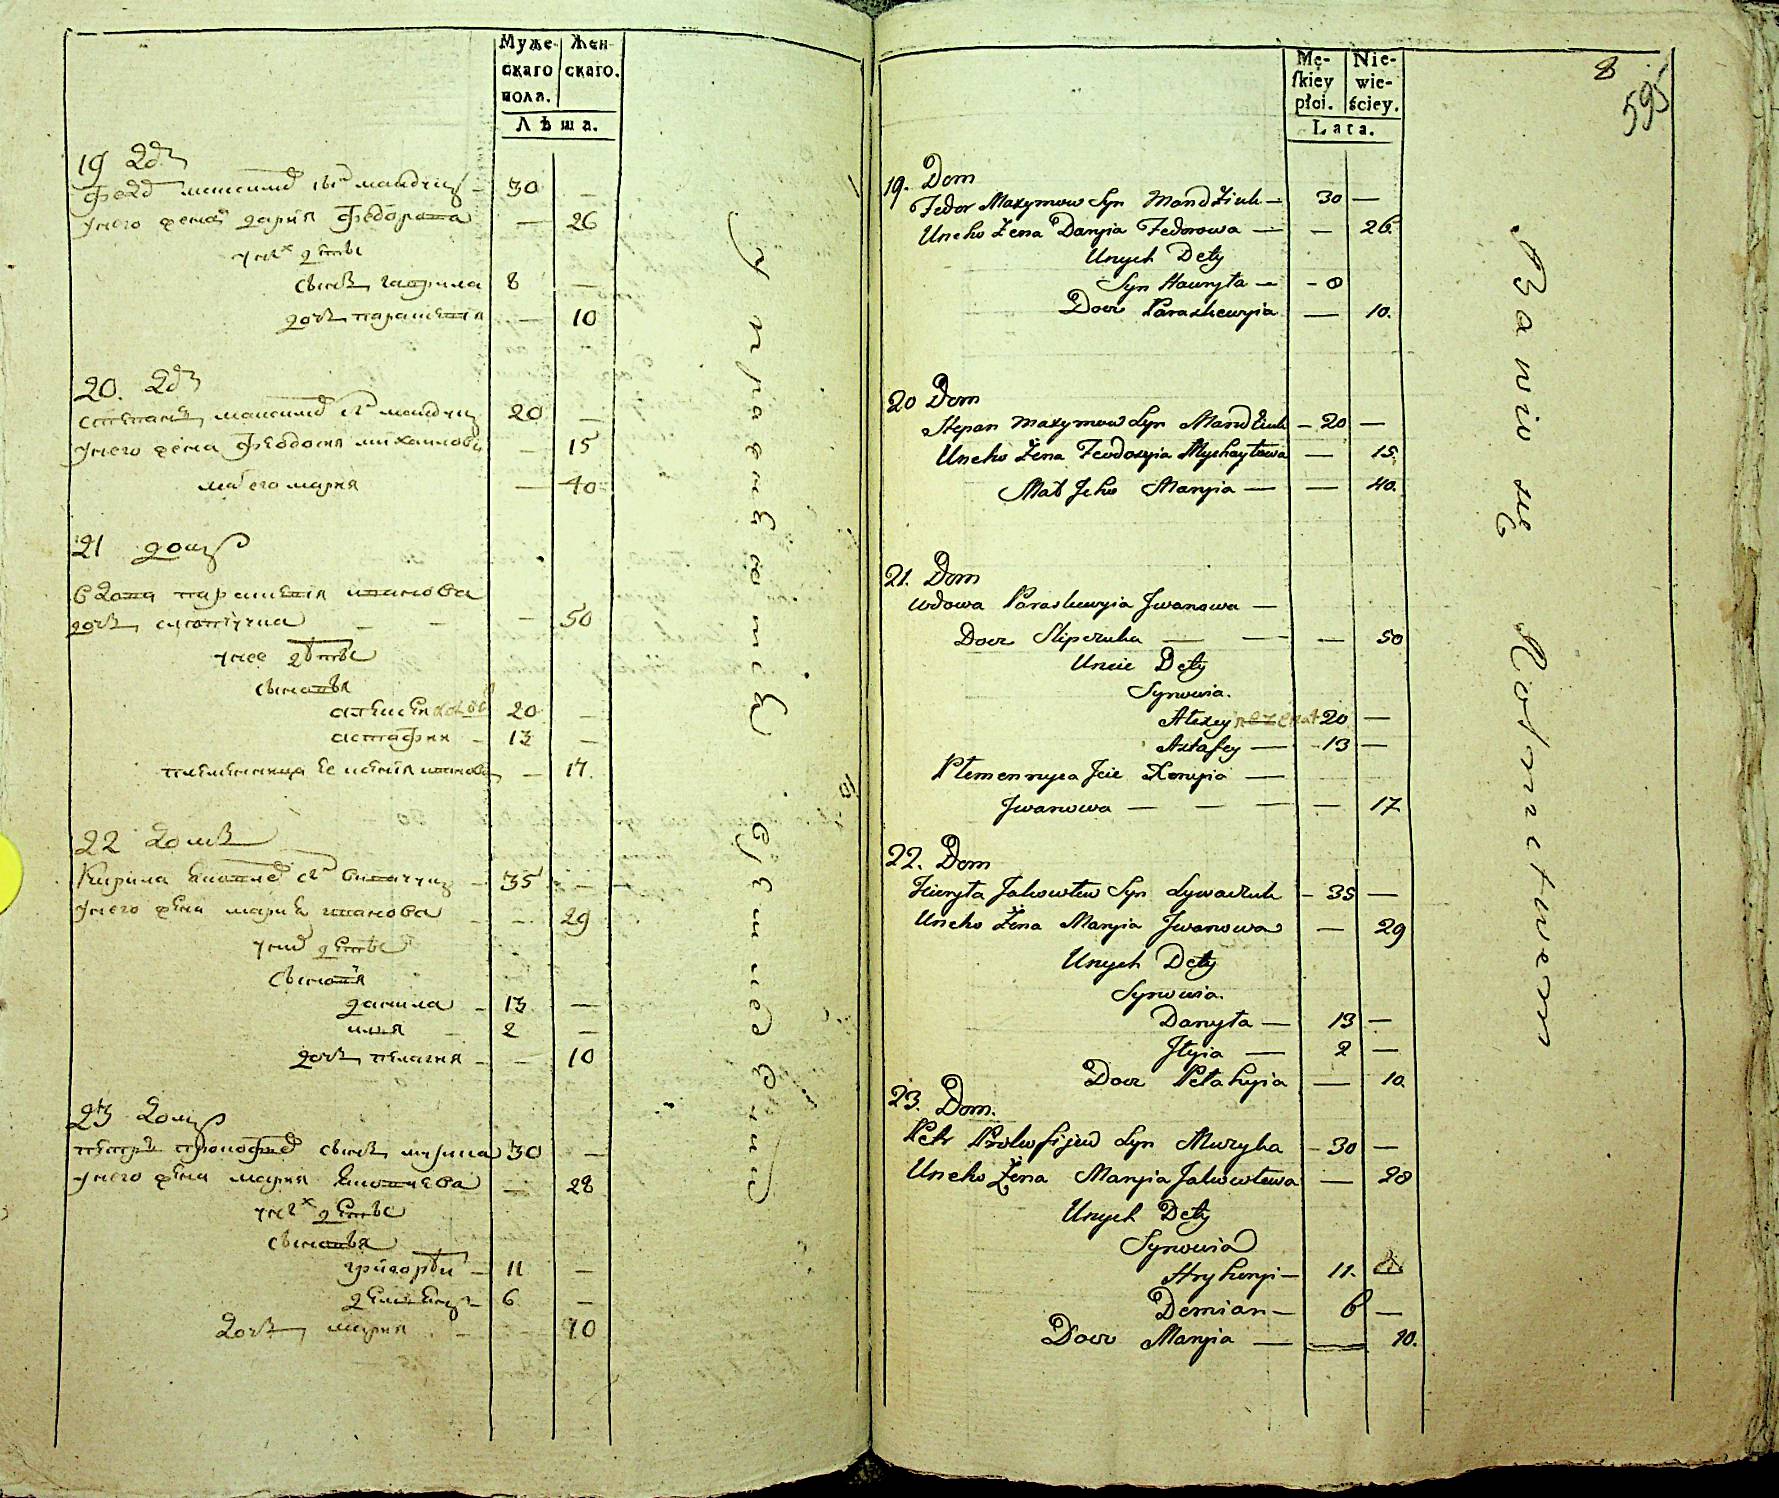 Муже-
скаго
пола.
Жен-
скаго.
Лѣта.
19
30 —
— 26
дѣти
сынъ гаврила 8 —
дочь параскевія — 10
20.
20 —
у него жена Феодосия михаилова — 15
мать его мария — 40
21 домъ
вдова параскевія иванова
дочь — — — 50
у нее дѣти
сыновья
алексѣй 20 —
астафии — 13 —
племенница ее ксенія иванова — 17.
22 домъ
Кирила 35 —
у него жена мария иванова — 29
дѣти
сыновья
данила — 13 —
илія — 2 —
дочь пелагия — — 10
23 домъ
петръ прокофиев сынъ музыка 30 —
у него жена мария яковлева — 28
дѣти
сыновья
григорѣй — 11 —
6 —
дочь мария — — 10
Упражняются Землѣделиемъ
Mę-
skiey
płoi.
Nie-
wie-
ściey.
Lata.
8
595
19. Dom
Fedor Maxymow Syn Mandziuk — 30 —
Uneho Żena Daryia Fedorowa — — 26.
Unych Dety
Syn Hawryła — - 8
Docz Paraskewyia — 10.
20 Dom
Stepan Maxymow Syn Mandziuk - 20 —
Uneho Żena Feodozyia Mychayłowa — 15.
Mat Jeho Maryia — — 40.
21. Dom
wdowa Paraskewyia Jwanowa —
Docz Slipczuka — — — 50
Uneie Dety
Synowia.
Alexey 20 —
Astafey — - 13 —
Płemennyca Jeie Xenyia —
Jwanowa — — — — 17
22. Dom
Kiryła Jakowlew Syn - 35 —
Uneho Żena Maryia Jwanowa — 29
Unych Dety
Synowia.
Danyła — 13 —
Jlyia — 2 —
Docz Pelahyia — 10
23. Dom.
Petr Prokofijew Syn Muzyka - 30 —
Uneho Żena Maryia Jakowlewa — 28
Unych Dety
Synowia
Hryhoryi — 11. —
Demian — 6 —
Docz Maryia — — 10.
Bawio się Rolnictwem